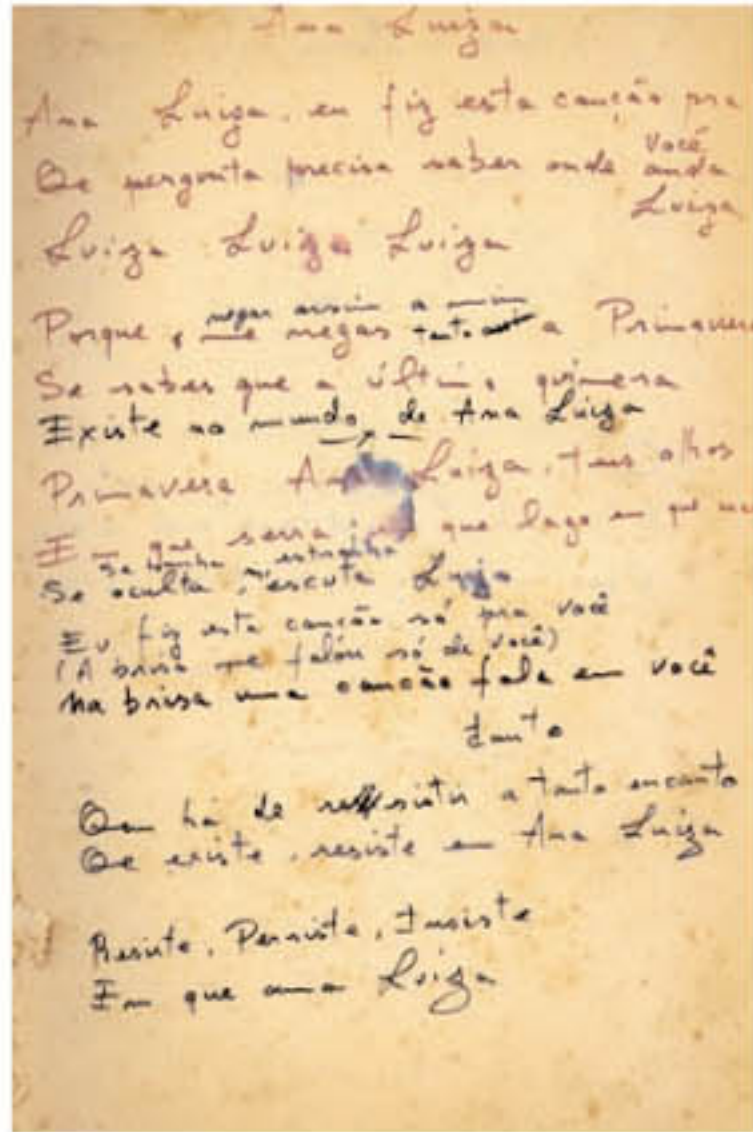 Ana Luiza
Ana Luiza, eu fiz esta canção pra
Qe pergunta precisa saber onde anda
você
Luiza
Luiza Luiza Luiza
negar assim a mim
Porque, me negas tanto a Primavera
Se sabes que a última quimera
Existe no mundo de Ana Luiza
Primavera Ana Luiza, teus olhos
Em que serra que lago em que
Se banha estranha
Se oculta, escuta Luiza
Eu fiz esta canção só pra você
(A brisa me falou só de você)
Na brisa uma canção fala em você
tanto
Qem há de resistir a tanto encanto
Qe existe, resiste em Ana Luiza
Resiste, Persiste, Insiste
Em que ama Luiza